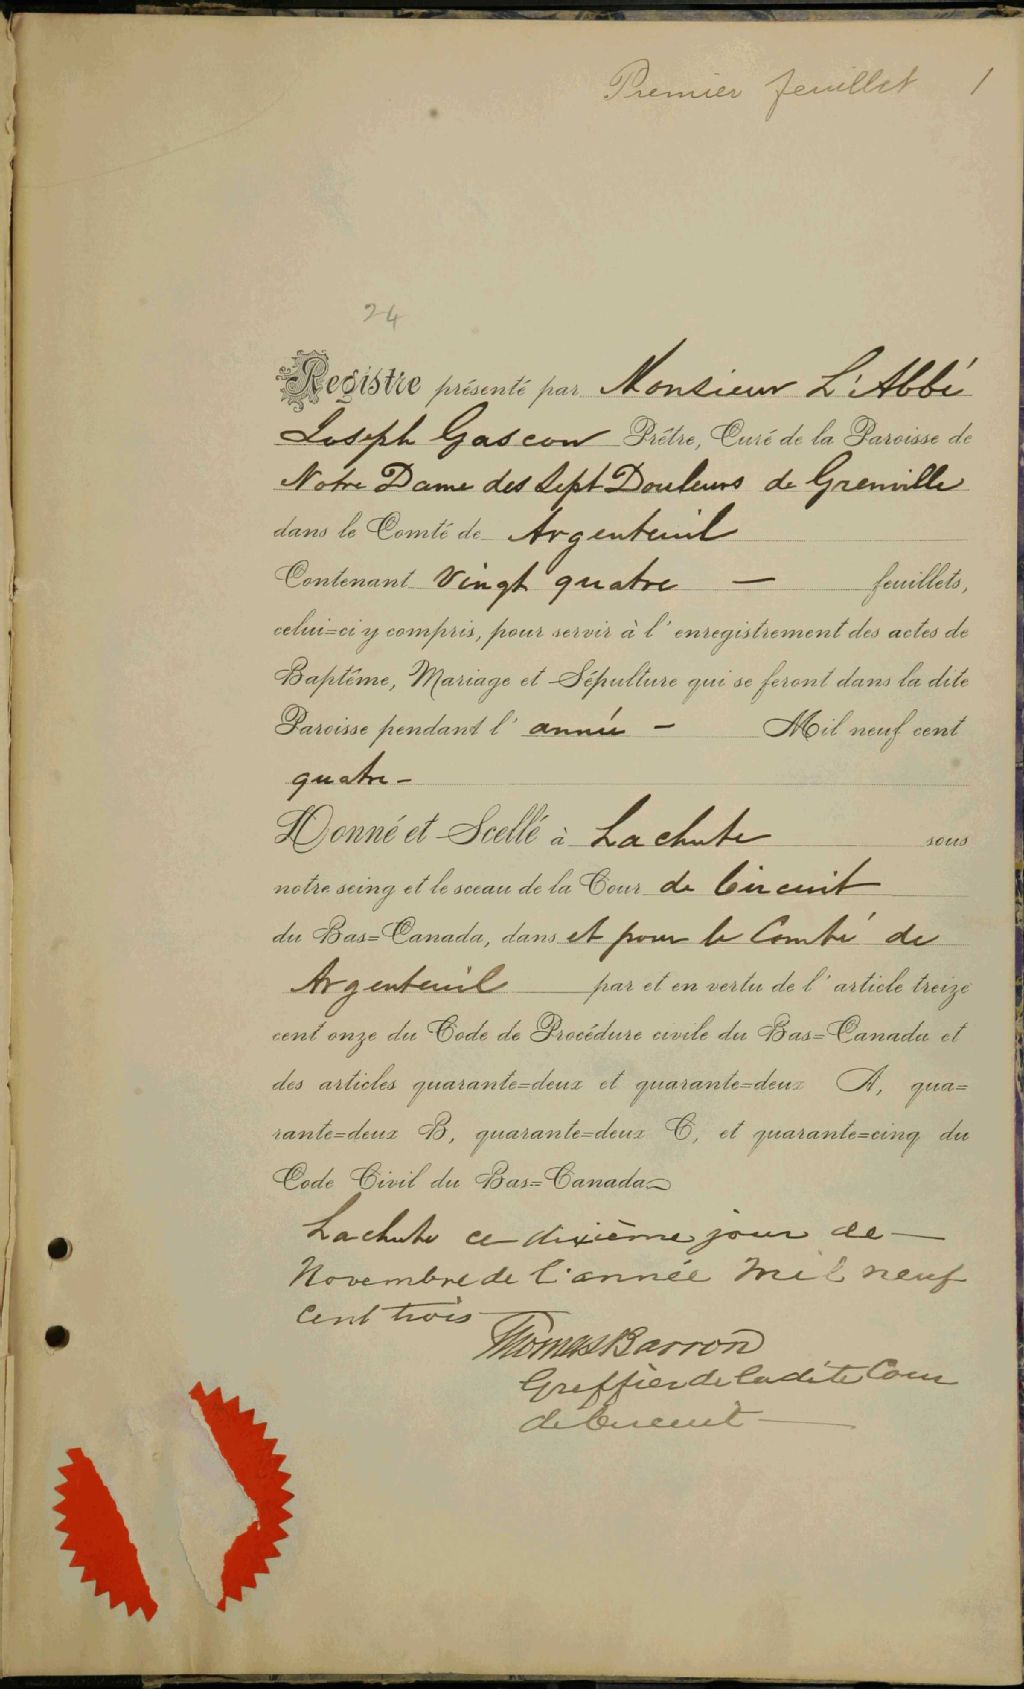 Premier feuillet 1
24
Registre présenté par Monsieur L'Abbé
Joseph Gascon Prêtre, Curé de la Paroisse de
Notre Dame des Sept Douleurs de Grenville
dans le Comté de Argenteuil
Contenant vingt quatre — feuillets,
celui=ci y compris, pour servir à l'enregistrement des actes de
Baptême, Mariage et Sépulture qui se feront dans la dite
Paroisse pendant l'année - Mil neuf cent
quatre -
Donné et Scellé à Lachute sous
notre seing et le sceau de la Cour de Circuit
du Bas=Canada, dans et pour le Comté de
Argenteuil par et en vertu de l'article treize
cent onze du Code de Procédure civile du Bas=Canada et
des articles quarante=deux et quarante=deux A, qua=
rante=deux B, quarante=deux C, et quarante=cinq du
Code Civil du Bas=Canada
Lachute ce dixième jour de —
Novembre de l'année Mil neuf
cent trois
Thomas Barron
Greffier de ladite Cour
de Circuit —